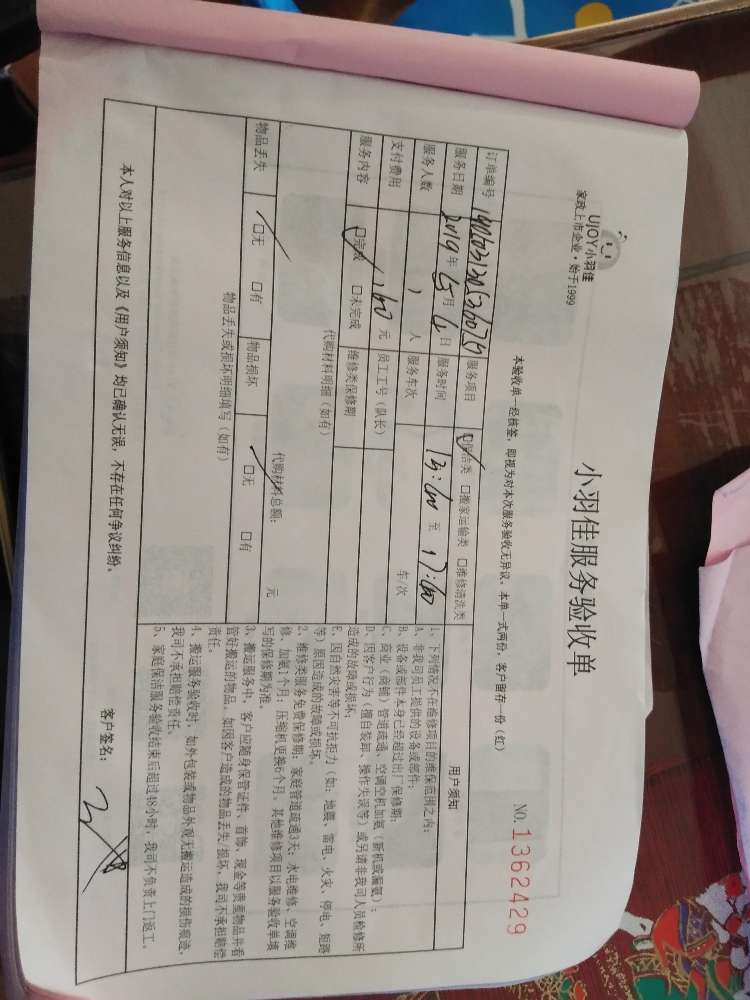 UJOY小羽佳
家政上市企业·始于1999
小羽佳服务验收单
NO. 1362429
本验收单一经核签，即视为对本次服务验收无异议，本单一式两份，客户留存一份（红）
订单编号
服务项目 口保洁类 口搬家运输类 口维修清洗类
服务日期 2019年5月6日 服务时间 13:00 至 17:00
服务人数 1 人 服务车次 车/次
支付费用 160 元 员工工号（队长）
服务内容 口完成 口未完成 维修类保修期
代购材料明细（如有）
代购材料总额： 元
物品丢失 口无 口有 物品损坏 口无 口有
物品丢失或损坏明细填写（如有）
用户须知
1、下列情况不在维修项目的维保范围之内：
A、非我司员工提供的设备或部件；
B、设备或部件本身已经超过出厂保修期；
C、商业（商铺）管道疏通、空调空机加氨（新机或漏氨）；
D、因客户行为（擅自装卸、操作失误等）或另请非我司人员检修所
造成的故障或损坏；
E、因自然灾害等不可抗拒力（如：地震、雷电、火灾、停电、短路
等）原因造成的故障或损坏。
2、维修类服务免费保修期：家庭管道疏通3天；水电维修、空调维
修、加氨1个月；压缩机更换6个月，其他维修项目以服务验收单填
写的保修期为准。
3、搬运服务中，客户应随身保管证件、首饰、现金等贵重物品并看
管好搬运的物品，如因客户造成的物品丢失/损坏，我司不承担赔偿
责任。
4、搬运服务验收时，如外包装或物品外观无搬运造成的损伤痕迹，
我司不承担赔偿责任。
5、家庭保洁服务验收结束后超过48小时，我司不负责上门返工。
本人对以上服务信息以及《用户须知》均已确认无误，不存在任何争议纠纷。
客户签名：